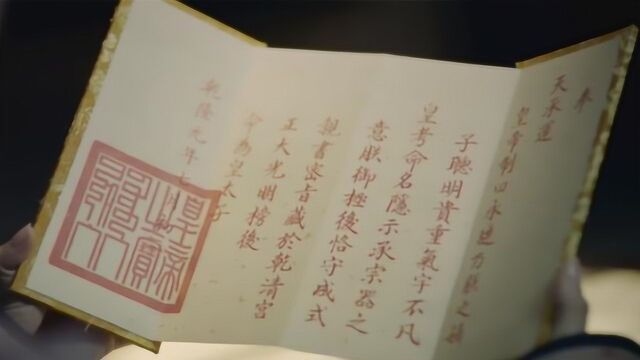 奉
天承運
皇帝制曰永璉乃朕之嫡
子聰明貴重氣宇不凡
皇考命名隱示承宗器之
意朕御極後恪守成式
親書密旨藏於乾清宮
正大光明榜後
為皇太子
乾隆元年七月
皇帝之寶